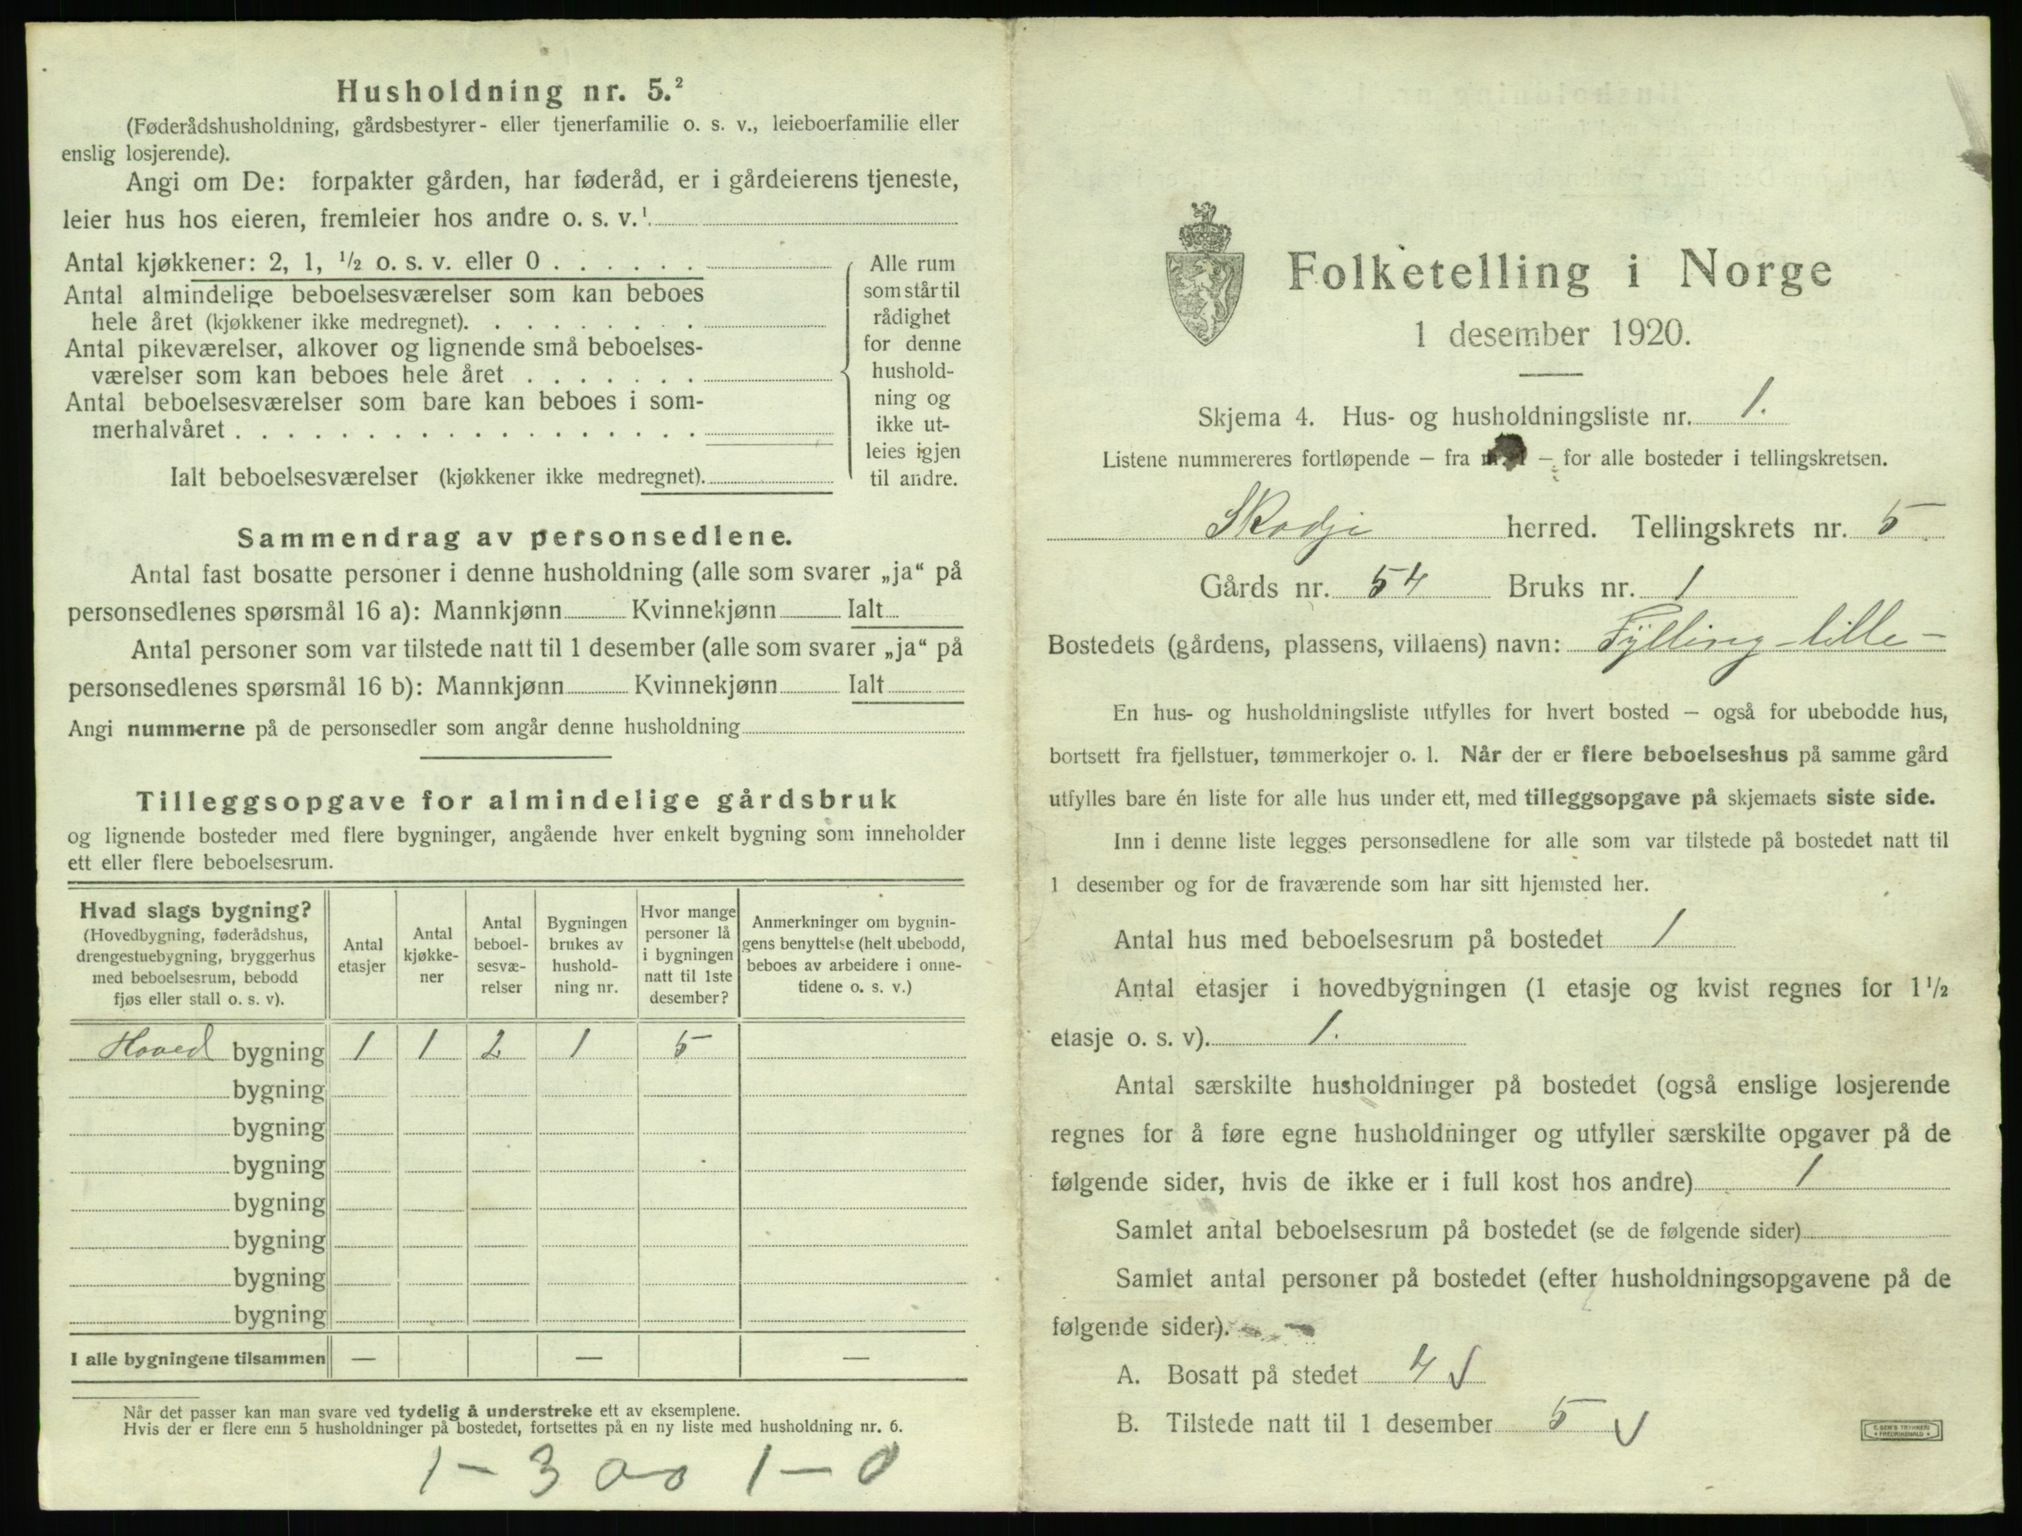 Husholdning nr. 5.²
(Føderådshusholdning, gårdsbestyrer- eller tjenerfamilie o. s. v., leieboerfamilie eller
enslig losjerende).
Angi om De: forpakter gården, har føderåd, er i gårdeierens tjeneste,
leier hus hos eieren, fremleier hos andre o. s. v.¹
Antal kjøkkener: 2, 1, ½ o. s. v. eller 0
Antal almindelige beboelsesværelser som kan beboes
hele året (kjøkkener ikke medregnet).
Antal pikeværelser, alkover og lignende små beboelses-
værelser som kan beboes hele året
Antal beboelsesværelser som bare kan beboes i som-
merhalvåret
Ialt beboelsesværelser (kjøkkener ikke medregnet).
Alle rum
som står til
rådighet
for denne
hushold-
ning og
ikke ut-
leies igjen
til andre.
Sammendrag av personsedlene.
Antal fast bosatte personer i denne husholdning (alle som svarer „ja“ på
personsedlenes spørsmål 16 a): Mannkjønn Kvinnekjønn Ialt
Antal personer som var tilstede natt til 1 desember (alle som svarer „ja“ på
personsedlenes spørsmål 16 b): Mannkjønn Kvinnekjønn Ialt
Angi nummerne på de personsedler som angår denne husholdning
Tilleggsopgave for almindelige gårdsbruk
og lignende bosteder med flere bygninger, angående hver enkelt bygning som inneholder
ett eller flere beboelsesrum.
Hvad slags bygning?
(Hovedbygning, føderådshus,
drengestuebygning, bryggerhus
med beboelsesrum, bebodd
fjøs eller stall o. s. v).
Antal
etasjer
Antal
kjøkke-
ner
Antal
beboel-
sesvæ-
relser
Bygningen
brukes av
hushold-
ning nr.
Hvor mange
personer lå
i bygningen
natt til 1ste
desember?
Anmerkninger om bygnin-
gens benyttelse (helt ubebodd,
beboes av arbeidere i onne-
tidene o. s. v.)
Hoved bygning 1 1 2 1 5
bygning
bygning
bygning
bygning
bygning
bygning
bygning
I alle bygningene tilsammen — — —
Når det passer kan man svare ved tydelig å understreke ett av eksemplene.
Hvis der er flere enn 5 husholdninger på bostedet, fortsettes på en ny liste med husholdning nr. 6.
1 - 3 00 1 - 0
Folketelling i Norge
1 desember 1920.
Skjema 4. Hus- og husholdningsliste nr. 1.
Listene nummereres fortløpende — fra — for alle bosteder i tellingskretsen.
Skodje herred. Tellingskrets nr. 5
Gårds nr. 54 Bruks nr. 1
Bostedets (gårdens, plassens, villaens) navn: Fylling-lille-
En hus- og husholdningsliste utfylles for hvert bosted — også for ubebodde hus,
bortsett fra fjellstuer, tømmerkojer o. l. Når der er flere beboelseshus på samme gård
utfylles bare én liste for alle hus under ett, med tilleggsopgave på skjemaets siste side.
Inn i denne liste legges personsedlene for alle som var tilstede på bostedet natt til
1 desember og for de fraværende som har sitt hjemsted her.
Antal hus med beboelsesrum på bostedet 1
Antal etasjer i hovedbygningen (1 etasje og kvist regnes for 1½
etasje o. s. v). 1.
Antal særskilte husholdninger på bostedet (også enslige losjerende
regnes for å føre egne husholdninger og utfyller særskilte opgaver på de
følgende sider, hvis de ikke er i full kost hos andre) 1
Samlet antal beboelsesrum på bostedet (se de følgende sider)
Samlet antal personer på bostedet (efter husholdningsopgavene på de
følgende sider).
A. Bosatt på stedet 4 √
B. Tilstede natt til 1 desember 5 √